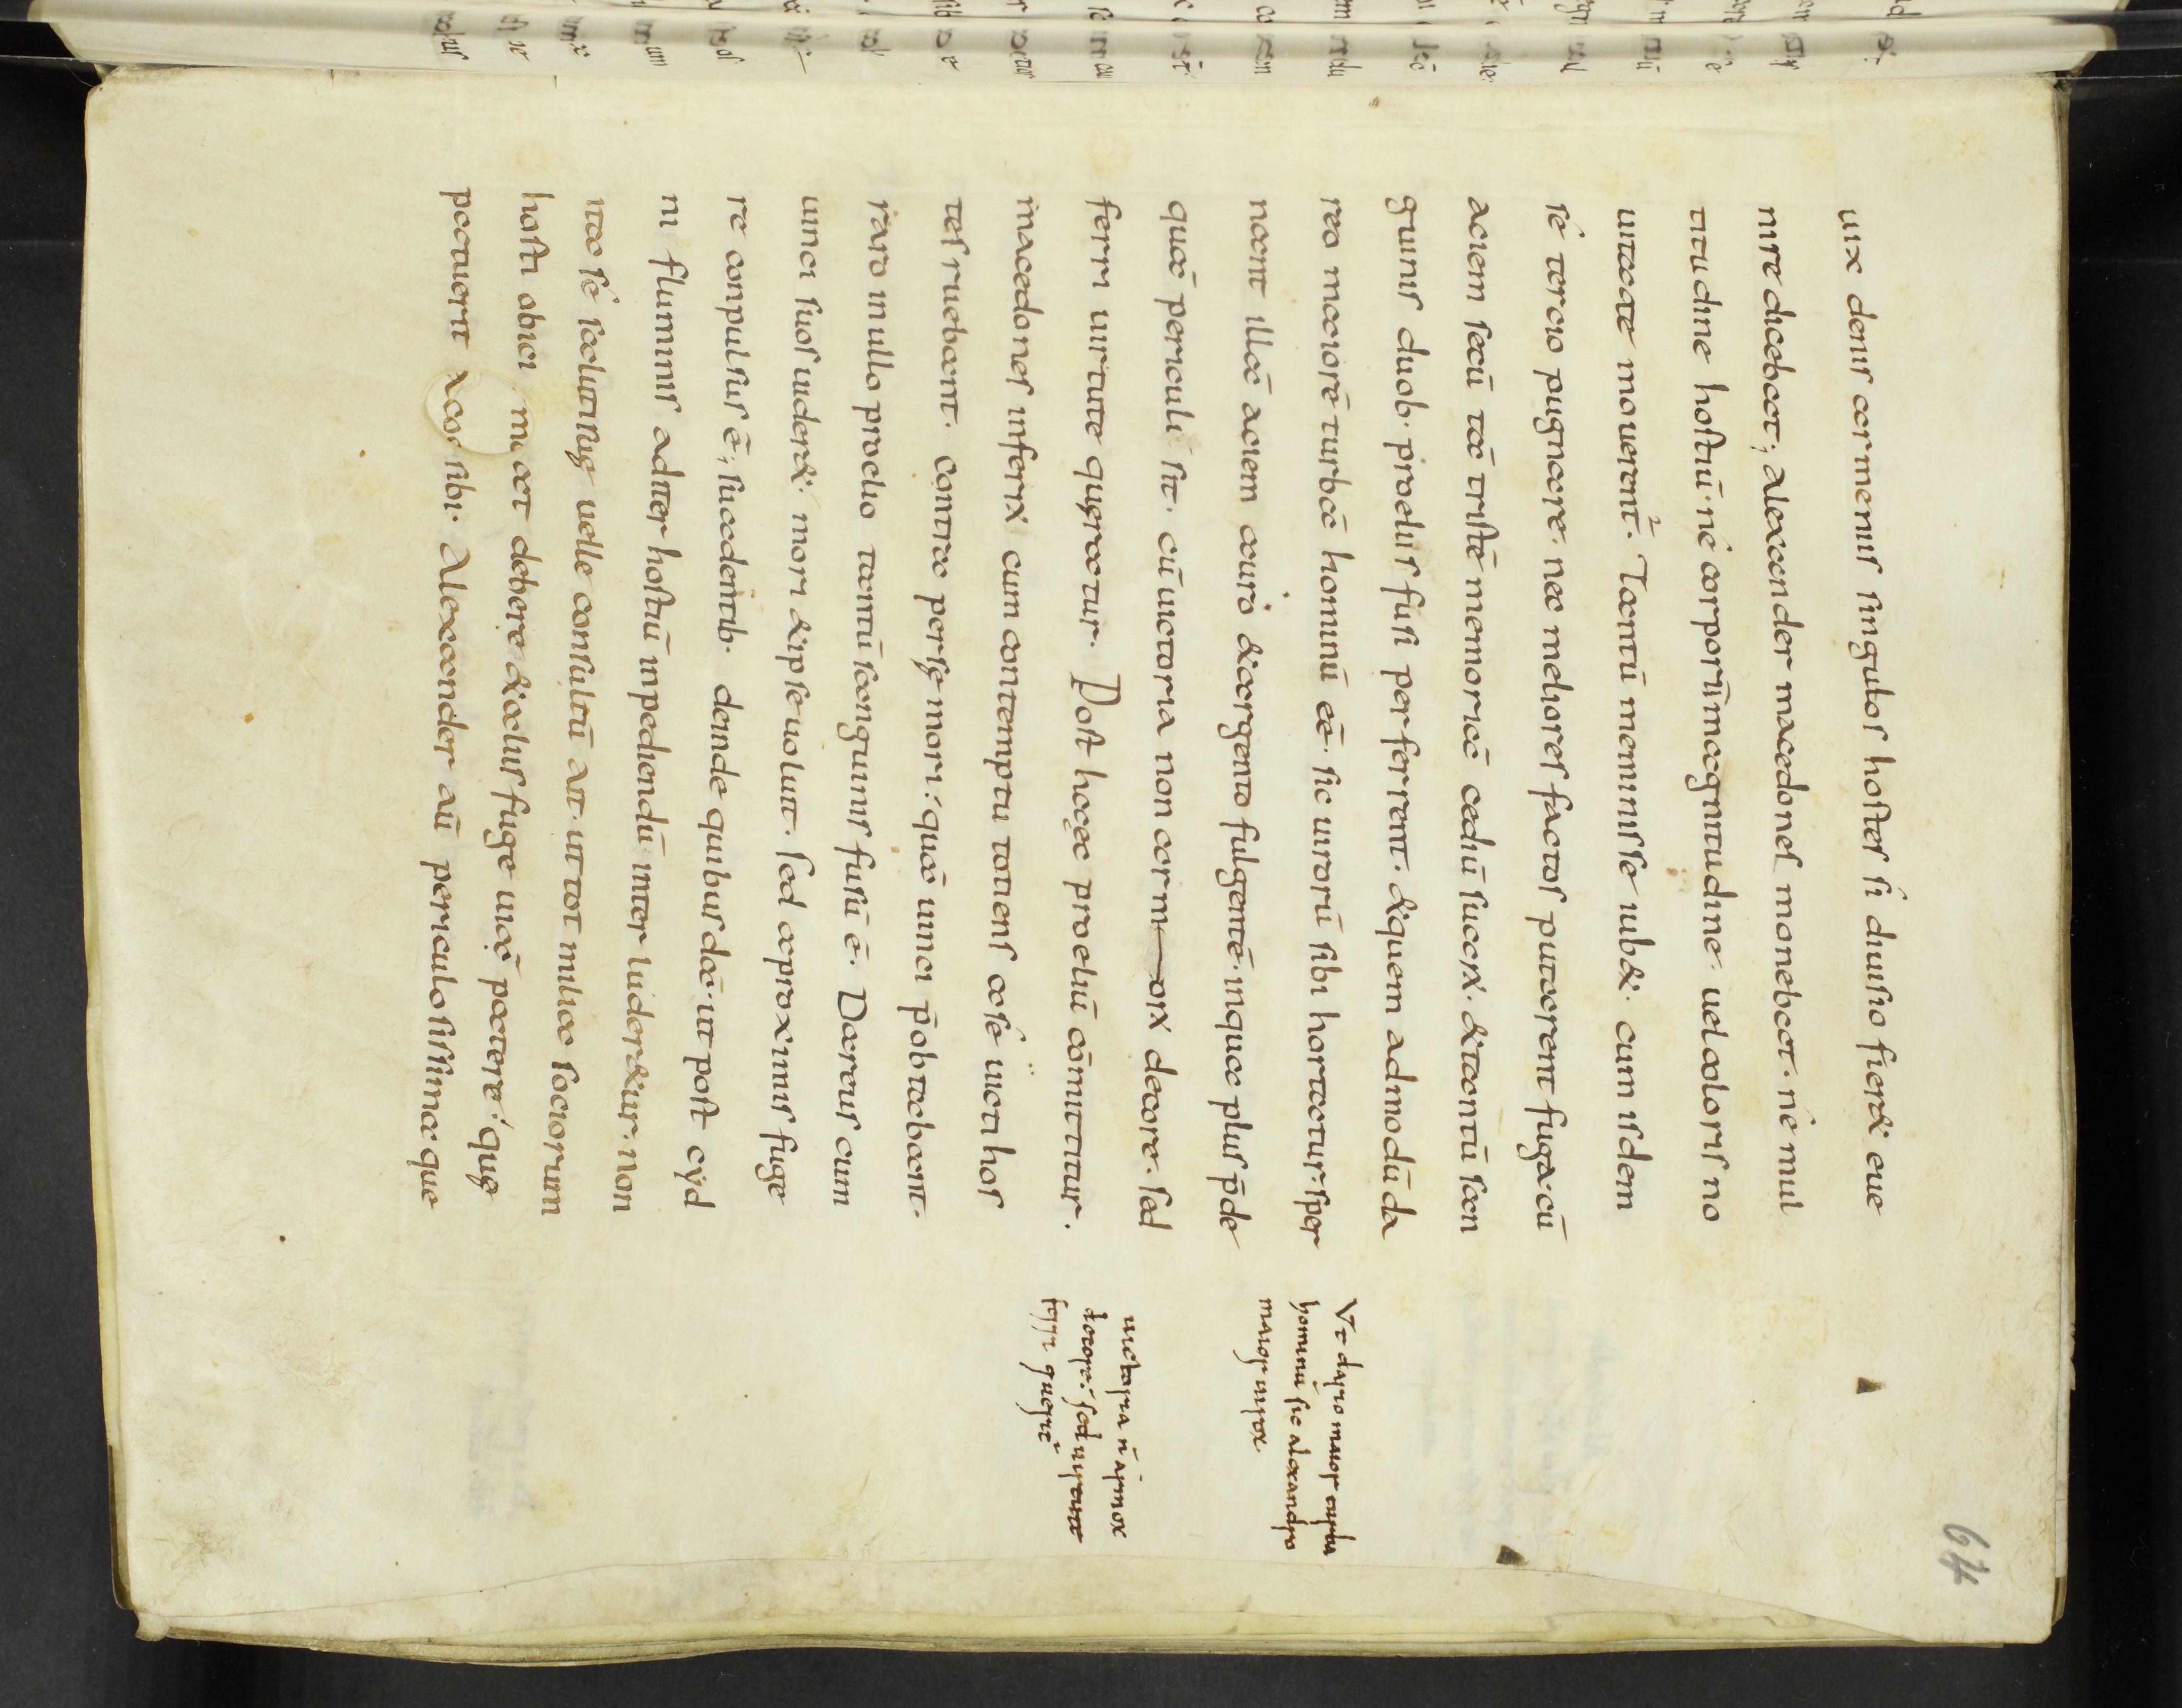 uix denis armenis singulos hostes si diuisio fieret eue
nire dicebat; alexander macedones monebat. né mul
titudine hostiū. né corporū magnitudine. uel coloris no
uitate mouerent̄. Tantū meminisse iubet. cum isdem
sé tercio pugnare. nec meliores factos putarent fuga. cū
aciem secū tā tristē memoriā cediū suarꝝ. & tantū san
guinis duob. proeliis fusi perferrent. & quem admodū da
reo maiorē turbā hominū eē. sic uirorū sibi hortatur. sper
nant illā aciem auro & argento fulgentē. inqua plus p̄de
quā periculi sit. cū uictoria non armorꝝ decore. sed
ferri uirtute queratur. Post hæc proeliū cōmittitur.
macedones inferrꝝ cum contemptu totiens asé uicti hos
tes ruebant. contra persę mori. quā uinci p̄obtabant.
raro in ullo proelio tantū sanguinis fusū ē. Dareus cum
uinci suos uideret. mori & ipse uoluit. sed a proximis fuge
re conpulsus ē; suadentib. deinde quibusdā. ut pons cyd
ni fluminis ad iter hostiū inpediendū inter luderetur. non
ita sé saluti suę uelle consultū ait. ut tot milia sociorum
hosti obiciat debere & aliis fuge uiā patere. quę
patuerit & sibi. Alexander aū periculosissima que
Vt dario maior turba
hominū sic alexandro
maior uiroꝝ
uictoria n̄ armoꝝ
decore. sed uirtute
ferri querit̄
64